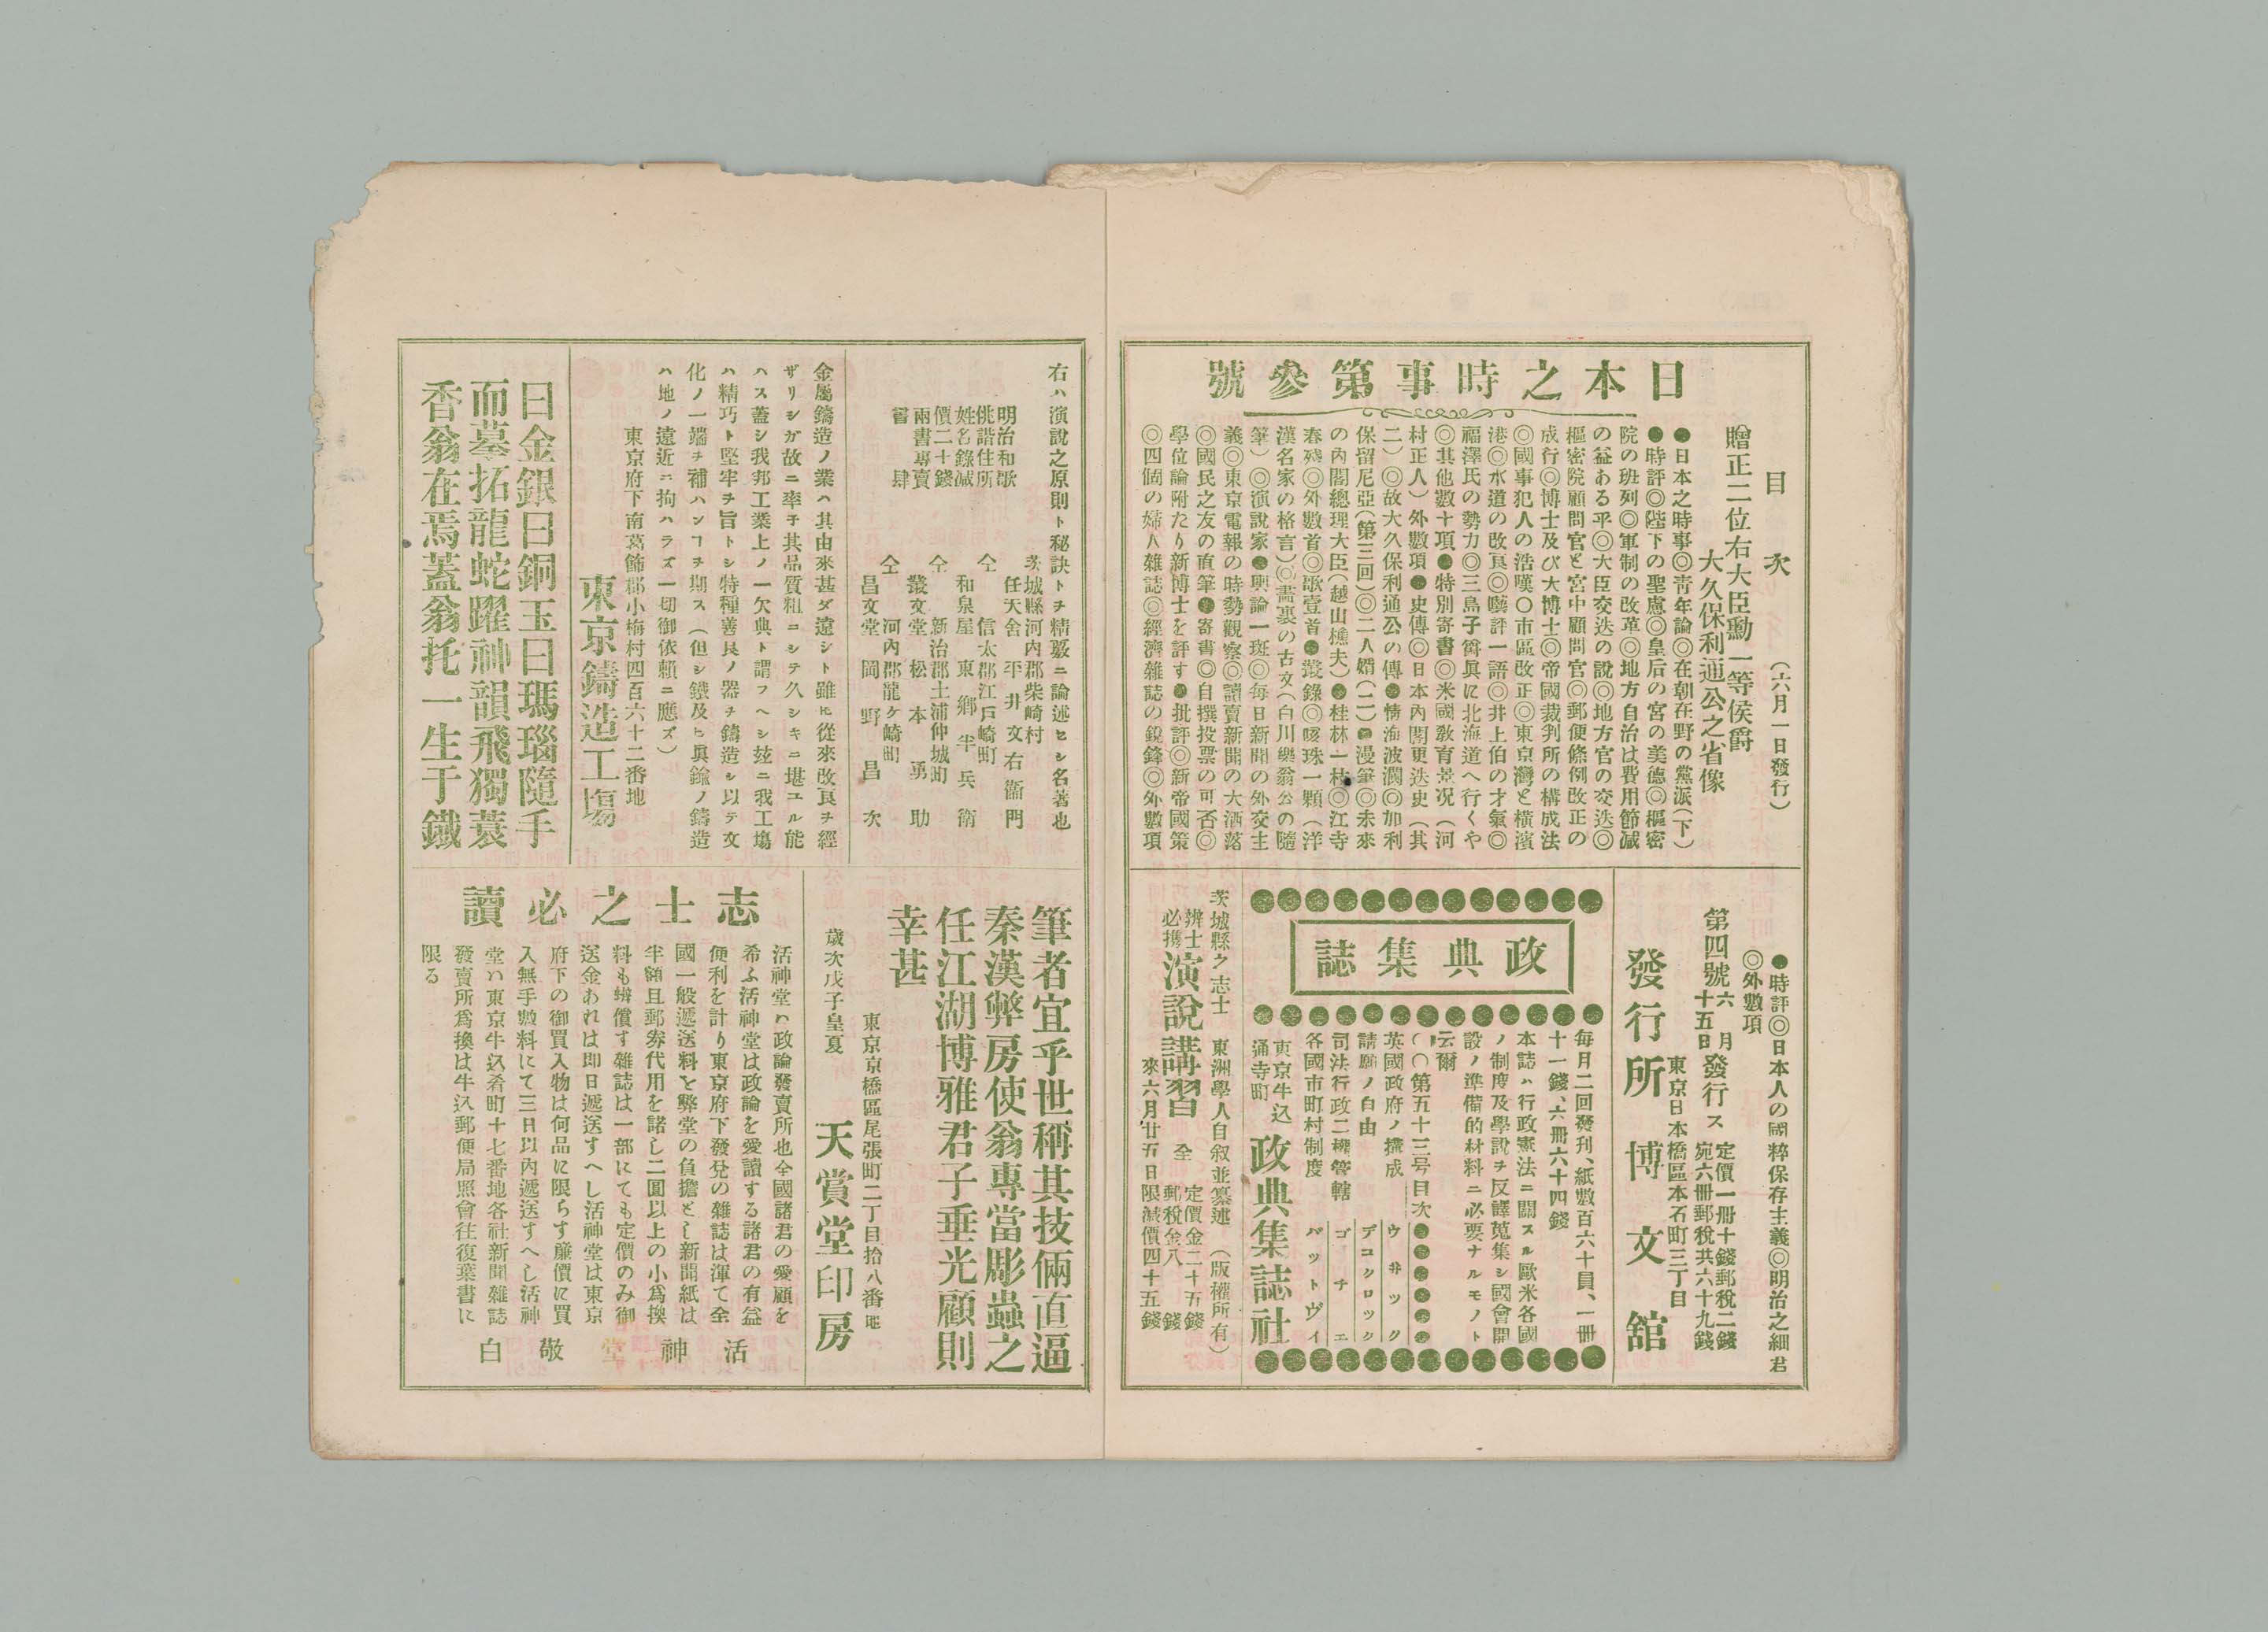 日本之時事第參號
目次
（六月一日發行）
贈正二位右大臣勳一等侯爵
大久保利通公之省像
●日本之時事◎靑年論◎在朝在野の黨派（下）
●時評◎陛下の聖慮◎皇后の宮の美德◎樞密
院の班列◎軍制の改革◎地方自治は費用節減
の益ある乎◎大臣交迭の說◎地方官の交迭◎
樞密院顧問官と宮中顧問官◎郵便條例改正の
成行◎博士及び大博士◎帝國裁判所の構成法
◎國事犯人の浩嘆○市區改正◎東京灣と橫濱
港◎水道の改良◎譏評一語◎井上伯の才氣◎
福澤氏の勢力◎三島子爵眞に北海道へ行くや
◎其他數十項●特別寄書◎米國敎育景况（河
村正人）外數項●史傳◎日本內閣更迭史（其
二）◎故大久保利通公の傳●情海波瀾◎加利
保留尼亞（第三回）◎二人婿（二）●漫筆◎未來
の內閣總理大臣（越山樵夫）●桂林一枝◎江寺
春殘◎外數首◎歌壹首●叢錄◎唾珠一顆（洋
漢名家の格言）◎書裏の古文（白川樂翁公の隨
筆）◎演說家●輿論一斑◎每日新聞の外交主
義◎東京電報の時勢觀察◎讀賣新聞の大洒落
◎國民之友の直筆●寄書◎自撰投票の可否◎
學位論附たり新博士を評す●批評◎新帝國策
◎四個の婦人雜誌◎經濟雜誌の銳鋒◎外數項
●時評◎日本人の國粹保存主義◎明治之細君
◎外數項
第四號六月十五日發行ス
定價一冊十錢郵稅二錢
宛六冊郵稅共六十九錢
東京日本橋區本石町三丁目
發行所 博文舘
政典集誌
每月二回發刊、紙數百六十員、一冊
十一錢、六冊六十四錢
本誌ハ行政憲法ニ關スル歐米各國
ノ制度及學說ヲ反譯蒐集シ國會開
設ノ準備的材料ニ必要ナルモノト
云爾
○○第五十三号目次●●●●●●
英國政府ノ搆成 ウ井ツク
請願ノ自由 デコクロツシ
司法行政二權管轄 ゴチエ
各國市町村制度 バットヴィ
東京牛込
通寺町
政典集誌社
茨城縣之志士 東洲學人自叙並纂述 （版權所有）
辨士
必携
演說講習 全
定價金二十五錢
郵稅金八錢
來六月廿五日限減價四十五錢
右ハ演說之原則ト秘訣トヲ精嚴ニ論述セシ名著也
明治和歌
俳諧住所
姓名錄減
價二十錢
兩書專賣
書肆
茨城縣河內郡柴崎村
任天舍 平井文右衞門
仝 信太郡江戶崎町
和泉屋 東鄉半兵衛
仝 新治郡土浦仲城町
叢文堂 松本勇助
仝 河內郡龍ケ崎町
昌文堂 岡野昌次
金屬鑄造ノ業ハ其由來甚ダ遠シト雖𪜈從來改良ヲ經
ザリシガ故ニ率子其品質粗ニシテ久シキニ堪ユル能
ハス蓋シ我邦工業上ノ一欠典ト謂フヘシ玆ニ我工塲
ハ精巧ト堅牢ヲ旨トシ特種善良ノ器ヲ鑄造シ以テ文
化ノ一端ヲ補ハンヿヲ期ス（但シ鐵及ヒ眞鍮ノ鑄造
ハ地ノ遠近ニ拘ハラズ一切御依賴ニ應ズ）
東京府下南葛飾郡小梅村四百六十二番地
東京鑄造工塲
曰金銀曰銅玉曰瑪瑙隨手
而摹拓龍蛇躍神韻飛獨蓑
香翁在焉蓋翁托一生于鐵
筆者宜乎世稱其技倆直逼
秦漢弊房使翁專當彫蟲之
任江湖博雅君子垂光顧則
幸甚
東京京橋區尾張町二丁目拾八番地
歲次戊子皇夏
天賞堂印房
志士之必讀
活神堂ハ政論發賣所也全國諸君の愛顧を
希ふ活神堂は政論を愛讀する諸君の有益
便利を計り東京府下發兌の雜誌は渾て全
國一般遞送料を弊堂の負擔とし新聞紙は
半額且郵劵代用を諾し二圓以上の小爲換
料も辨償す雜誌は一部にても定價のみ御
送金あれは即日遞送すへし活神堂は東京
府下の御買入物は何品に限らす廉價に買
入無手數料にて三日以內遞送すへし活神
堂ハ東京牛込肴町十七番地各社新聞雜誌
發賣所爲換は牛込郵便局照會往復葉書に
限る
活神堂敬白